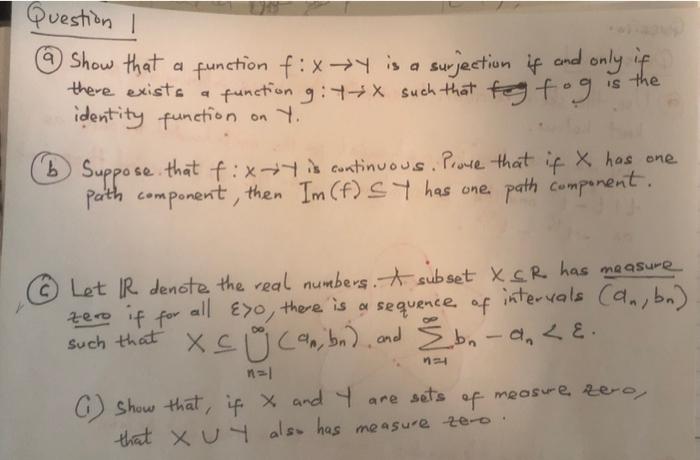 Question 1
(a) Show that a function f: X → Y is a surjection if and only if
there exists a function g: Y → X such that f∘g is the
identity function on Y.
(b) Suppose that f: X → Y is continuous. Prove that if X has one
path component, then Im(f) ⊆ Y has one path component.
(c) Let ℝ denote the real numbers. A subset X ⊆ ℝ has measure
zero if for all ε>0, there is a sequence of intervals (aₙ, bₙ)
such that X ⊆ ⋃_{n=1}^{∞} (aₙ, bₙ) and ∑_{n=1}^{∞} bₙ - aₙ < ε.
(i) Show that, if X and Y are sets of measure zero,
that X ∪ Y also has measure zero.